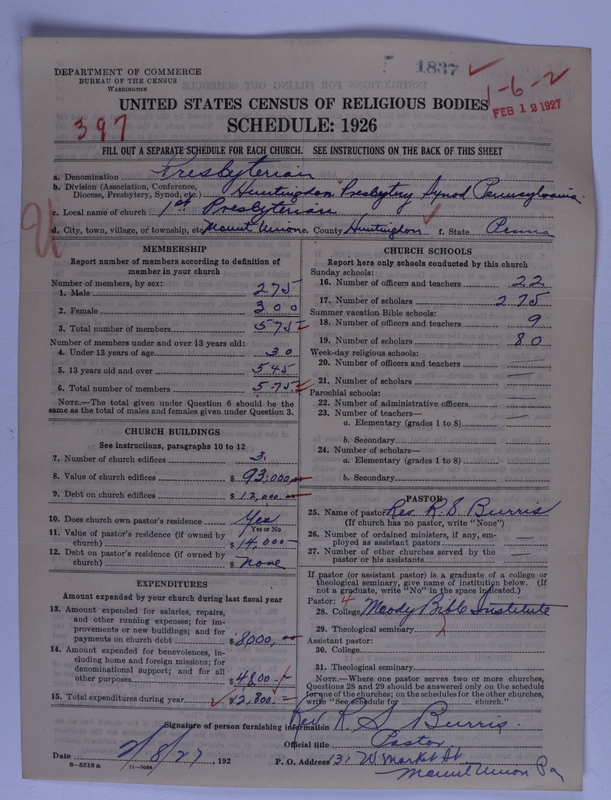 1837
DEPARTMENT OF COMMERCE
BUREAU OF THE CENSUS
WASHINGTON
1-6-2
FEB 12 1927
UNITED STATES CENSUS OF RELIGIOUS BODIES
397
SCHEDULE: 1926
FILL OUT A SEPARATE SCHEDULE FOR EACH CHURCH. SEE INSTRUCTIONS ON THE BACK OF THIS SHEET
a. Denomination Presbyterian
b. Division (Association, Conference, Diocese, Presbytery, Synod, etc.) Huntingdon Presbytery Synod Pennsylvania
c. Local name of church 1st Presbyterian
d. City, town, village, or township, etc. Mount Union e. County Huntingdon f. State Penna
MEMBERSHIP
Report number of members according to definition of
member in your church
Number of members, by sex:
1. Male 275
2. Female 300
3. Total number of members 575
Number of members under and over 13 years old:
4. Under 13 years of age 30
5. 13 years old and over 545
6. Total number of members 575
NOTE.—The total given under Question 6 should be the
same as the total of males and females given under Question 3.
CHURCH BUILDINGS
See instructions, paragraphs 10 to 12
7. Number of church edifices 3.
8. Value of church edifices $ 93,000
9. Debt on church edifices $ 12,000
10. Does church own pastor's residence Yes
Yes or No
11. Value of pastor's residence (if owned by
church) $ 14,000
12. Debt on pastor's residence (if owned by
church) $ none
EXPENDITURES
Amount expended by your church during last fiscal year
13. Amount expended for salaries, repairs,
and other running expenses; for im-
provements or new buildings; and for
payments on church debt $ 8000,
14. Amount expended for benevolences, in-
cluding home and foreign missions; for
denominational support; and for all
other purposes $ 4800
15. Total expenditures during year $ 12,800.
CHURCH SCHOOLS
Report here only schools conducted by this church
Sunday schools:
16. Number of officers and teachers 22
17. Number of scholars 275
Summer vacation Bible schools:
18. Number of officers and teachers 9
19. Number of scholars 80
Week-day religious schools:
20. Number of officers and teachers —
21. Number of scholars —
Parochial schools:
22. Number of administrative officers —
23. Number of teachers—
a. Elementary (grades 1 to 8) —
b. Secondary
24. Number of scholars—
a. Elementary (grades 1 to 8) —
b. Secondary
PASTOR
25. Name of pastor Rev. R. S. Burris
(If church has no pastor, write "None")
26. Number of ordained ministers, if any, em-
ployed as assistant pastors —
27. Number of other churches served by the
pastor or his assistants —
If pastor (or assistant pastor) is a graduate of a college or
theological seminary, give name of institution below. (If
not a graduate, write "No" in the space indicated.)
Pastor:
28. College Moody Bible Institute
29. Theological seminary
Assistant pastor:
30. College
31. Theological seminary
NOTE.—Where one pastor serves two or more churches,
Questions 28 and 29 should be answered only on the schedule
for one of the churches; on the schedule for the other churches,
write "See schedule for church."
Signature of person furnishing information Rev R. S. Burris.
Official title Pastor
Date 2/8/27, 192 P. O. Address 31 W Market St
8—5510 a
Mount Union Pa